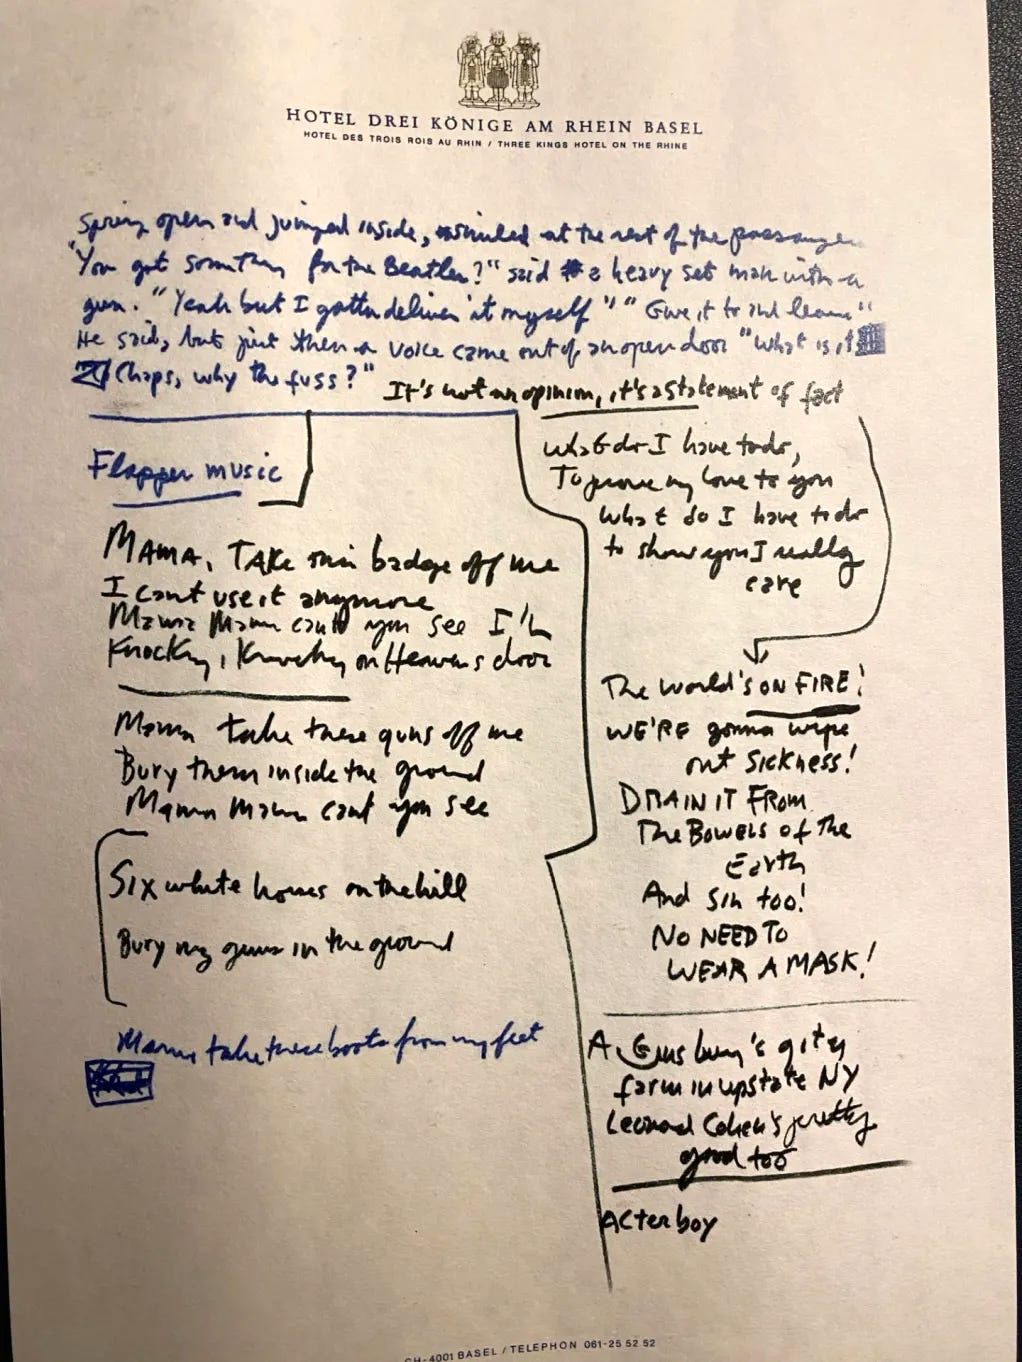 HOTEL DREI KÖNIGE AM RHEIN BASEL
HOTEL DES TROIS ROIS AU RHIN / THREE KINGS HOTEL ON THE RHINE
Spring open and jumped inside, smiled at the rest of the passengers
"You got something for the Beatles?" said a heavy set man with a
gun. "Yeah but I gotta deliver it myself" " Give it to and leave"
He said, but just then a voice came out of an open door "What is it
Chaps, why the fuss?"
It's not an opinion, it's a statement of fact
Flapper music
MAMA, TAKE this badge off me
I cant use it anymore
Mama Mama cant you see I'm
Knocking, Knocking on Heavens door
Mama take these guns off me
Bury them inside the ground
Mama Mama cant you see
Six white horses on the hill
Bury my guns in the ground
Mama take these boots from my feet
What do I have to do,
To prove my love to you
What do I have to do
to show you I really
care
The World's ON FIRE!
WE'RE gonna wipe
out sickness!
DRAIN IT FROM
The BOWELS of The
Earth
And Sin too!
NO NEED TO
WEAR A MASK!
A. Ginsburg's
farm in upstate NY
Leonard Cohen's pretty
good too
Acter boy
CH-4001 BASEL / TELEPHON 061-25 52 52